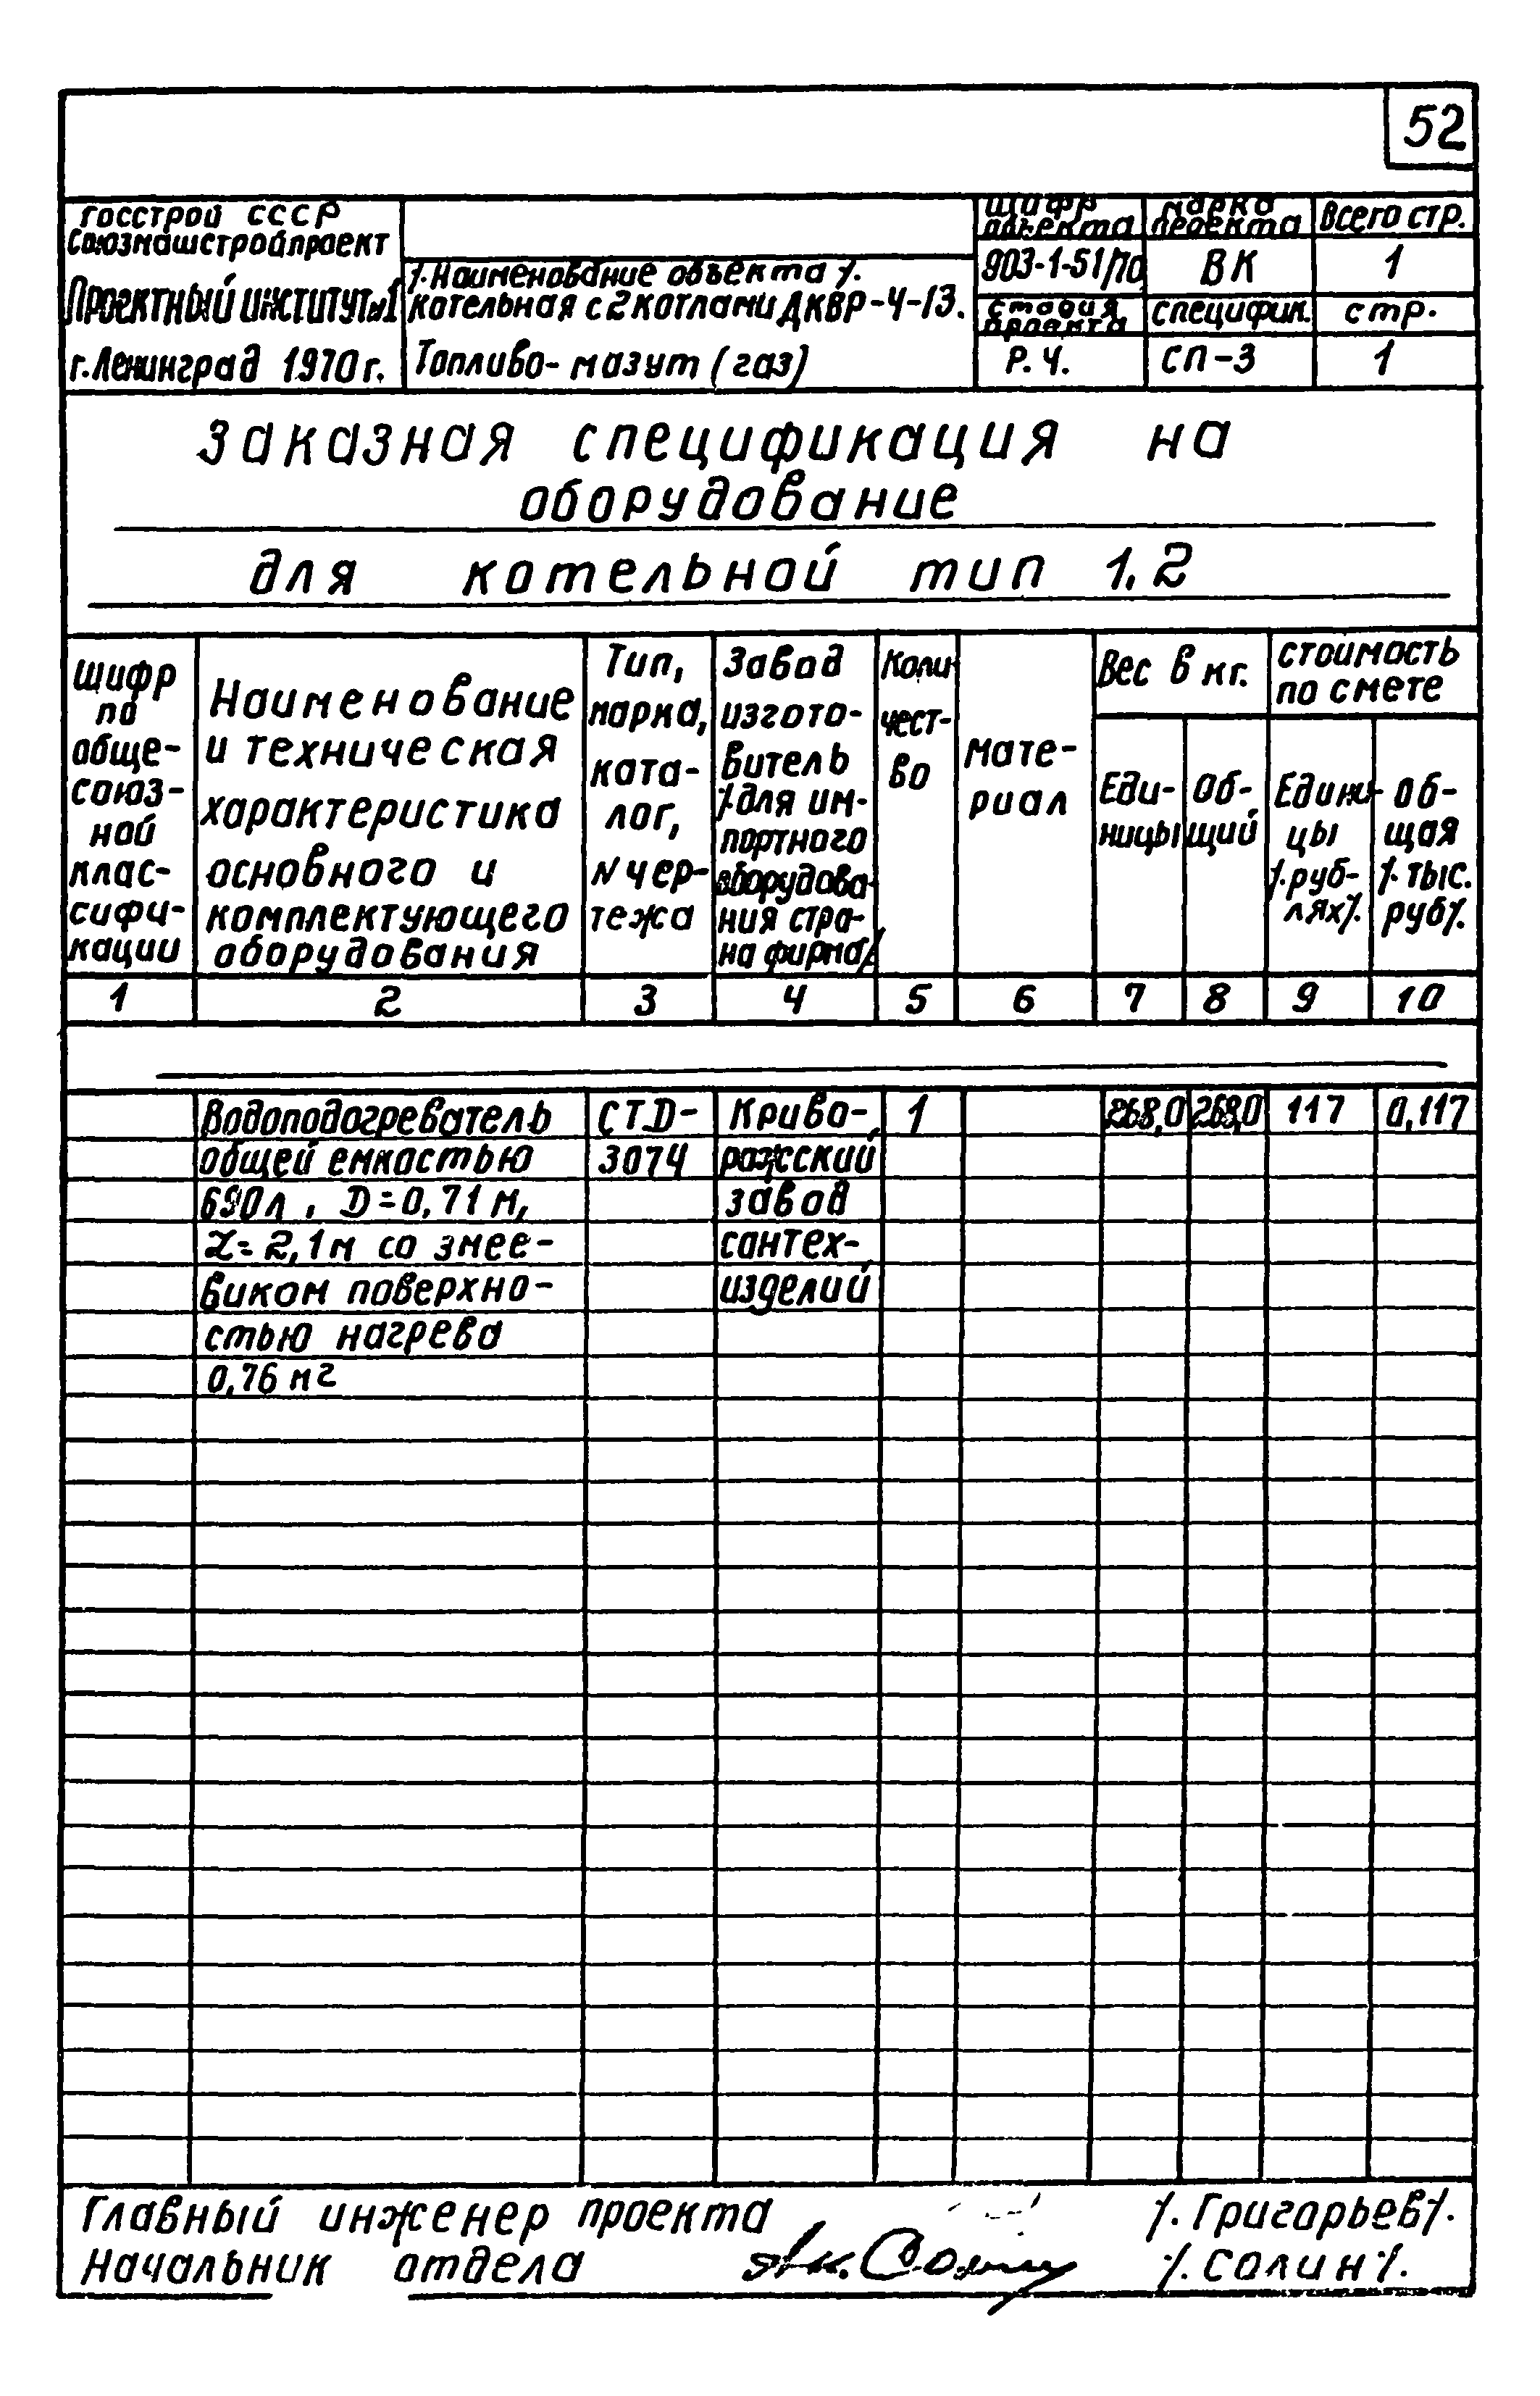 52
Госстрой СССР
Союзмашстройпроект
Проектный институт №1
г. Ленинград 1970 г.
/. Наименование объекта /.
котельная с 2 котлами ДКВР-4-13.
Топливо- мазут (газ)
шифр объекта
марка проекта
Всего стр.
903-1-51/70
ВК
1
стадия проекта
специфик.
стр.
Р.Ч.
СП-3
1
Заказная спецификация на
оборудование
для котельной тип 1.2
Шифр
по
обще-
союз-
ной
клас-
сифи-
кации
Наименование
и техническая
характеристика
основного и
комплектующего
оборудования
Тип,
марка,
ката-
лог,
N чер-
тежа
Завод
изгото-
витель
/для им-
портного
оборудова-
ния стра-
на фирма/
Коли-
чест-
во
мате-
риал
Вес в кг.
Еди-
ницы
Об-
щий
стоимость
по смете
Едини-
цы
/.руб-
лях/.
об-
щая
/.тыс.
руб/.
1 2 3 4 5 6 7 8 9 10
Водоподогреватель СТД- Криво- 1 268,0 268,0 117 0,117
общей емкостью 3074 рожский
690л, D=0,71 м, завод
L=2,1м со змее- сантех-
виком поверхно- изделий
стью нагрева
0,76 м2
Главный инженер проекта /. Григорьев/.
Начальник отдела /. Солин /.